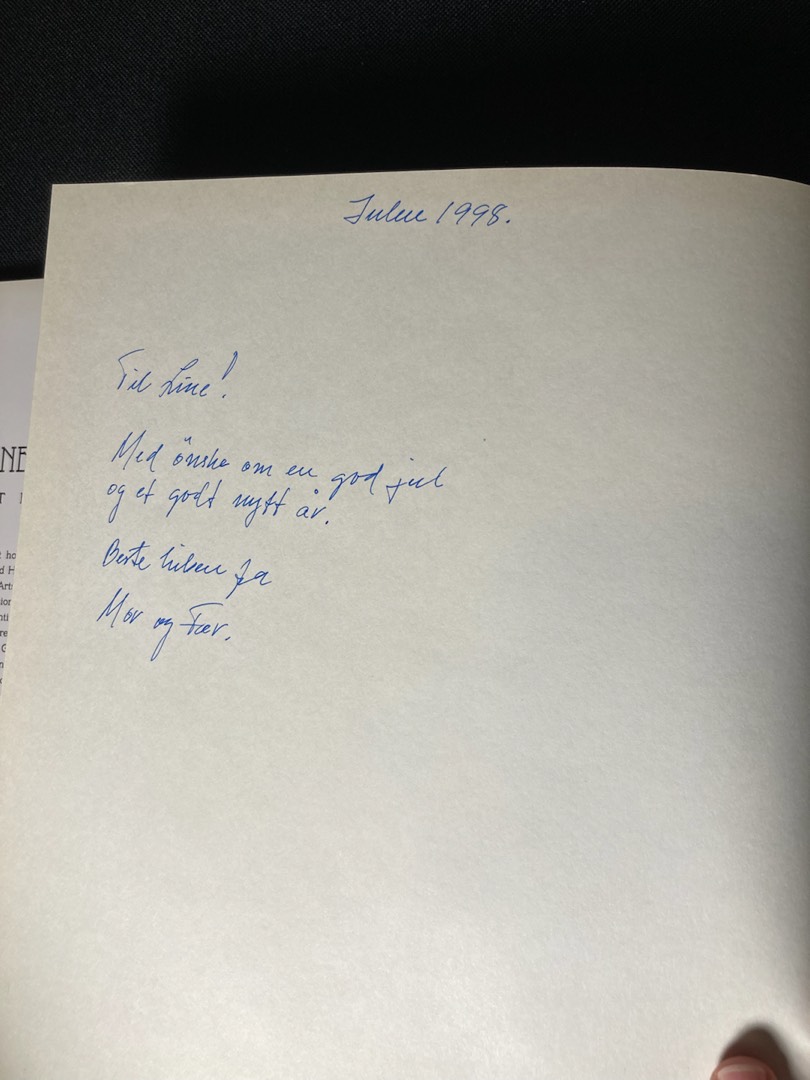 Julen 1998.
Til Line!
Med önske om en god jul
og et godt nytt år.
Beste hilsen fra
Mor og Far.
NE
T
t ho
d H
Art
tion
nti
re
G
n